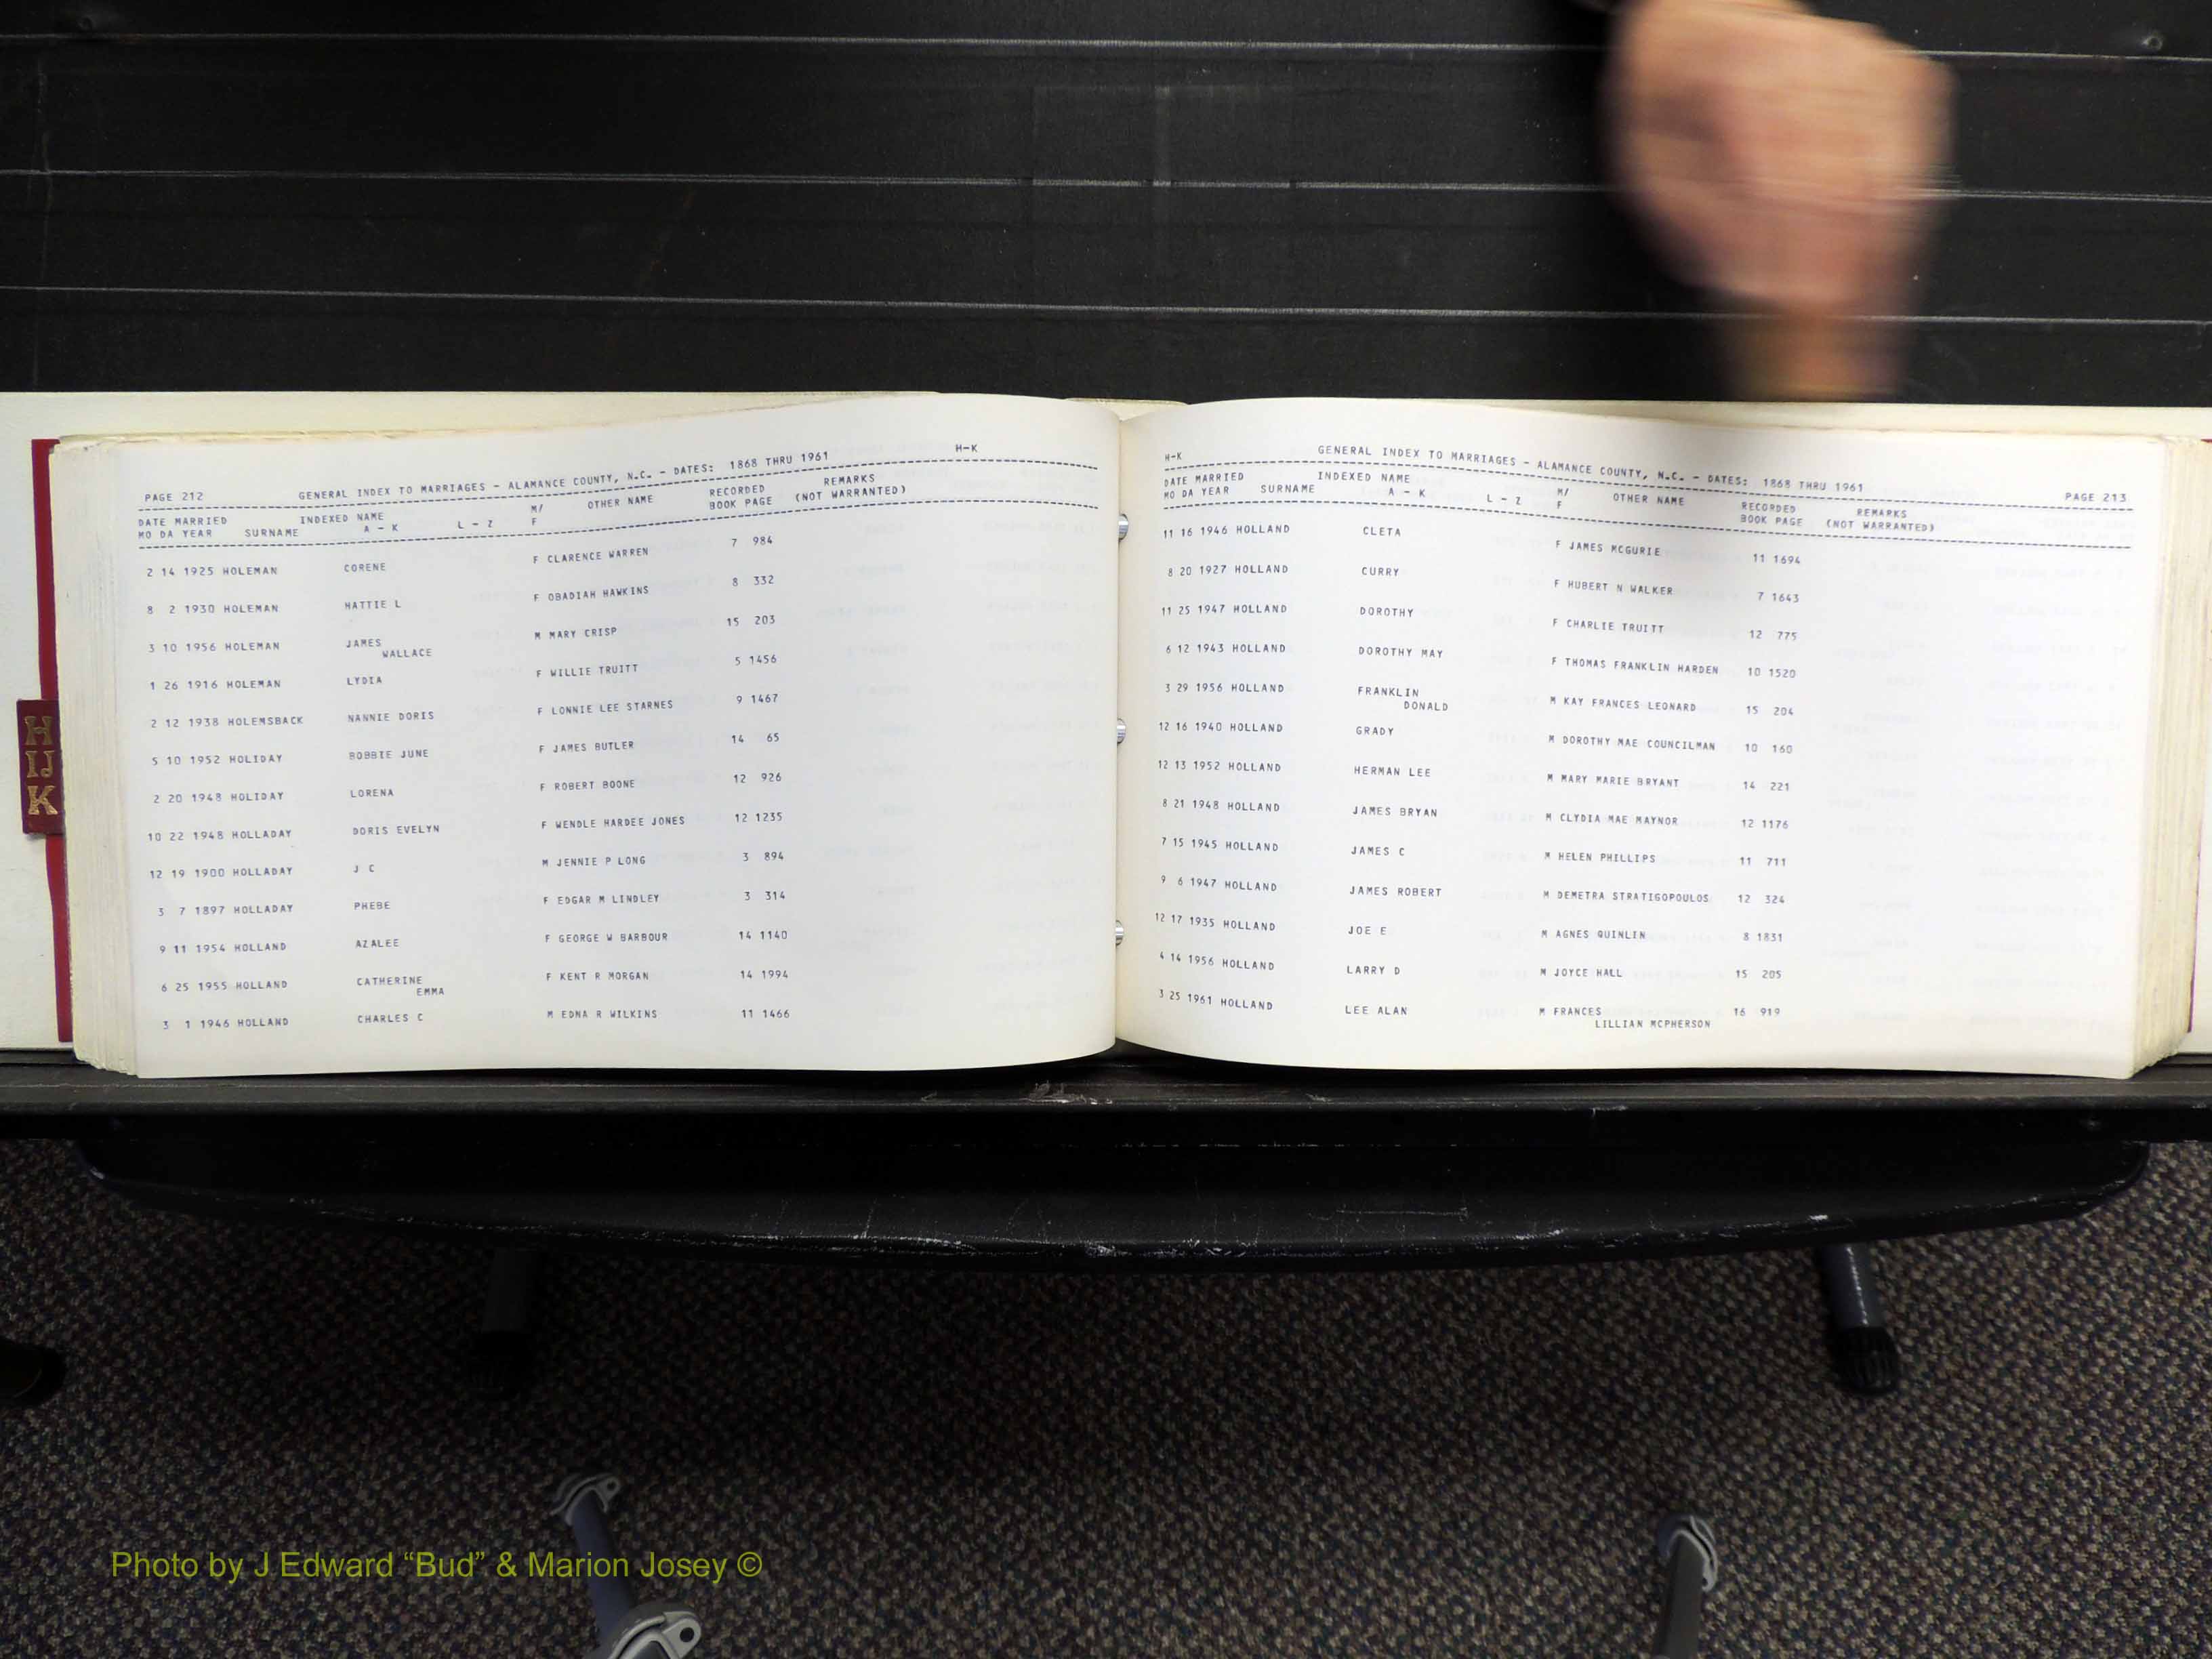 PAGE 212 GENERAL INDEX TO MARRIAGES - ALAMANCE COUNTY, N.C. - DATES: 1868 THRU 1961 H-K
DATE MARRIED INDEXED NAME M/ OTHER NAME RECORDED REMARKS
MO DA YEAR SURNAME A - K L - Z F BOOK PAGE (NOT WARRANTED)
2 14 1925 HOLEMAN CORENE F CLARENCE WARREN 7 984
8 2 1930 HOLEMAN HATTIE L F OBADIAH HAWKINS 8 332
3 10 1956 HOLEMAN JAMES M MARY CRISP 15 203
WALLACE
1 26 1916 HOLEMAN LYDIA F WILLIE TRUITT 5 1456
2 12 1938 HOLEMSBACK NANNIE DORIS F LONNIE LEE STARNES 9 1467
5 10 1952 HOLIDAY BOBBIE JUNE F JAMES BUTLER 14 65
2 20 1948 HOLIDAY LORENA F ROBERT BOONE 12 926
10 22 1948 HOLLADAY DORIS EVELYN F WENDLE HARDEE JONES 12 1235
12 19 1900 HOLLADAY J C M JENNIE P LONG 3 894
3 7 1897 HOLLADAY PHEBE F EDGAR M LINDLEY 3 314
9 11 1954 HOLLAND AZALEE F GEORGE W BARBOUR 14 1140
6 25 1955 HOLLAND CATHERINE F KENT R MORGAN 14 1994
EMMA
3 1 1946 HOLLAND CHARLES C M EDNA R WILKINS 11 1466
H-K GENERAL INDEX TO MARRIAGES - ALAMANCE COUNTY, N.C. - DATES: 1868 THRU 1961 PAGE 213
DATE MARRIED INDEXED NAME M/ OTHER NAME RECORDED REMARKS
MO DA YEAR SURNAME A - K L - Z F BOOK PAGE (NOT WARRANTED)
11 16 1946 HOLLAND CLETA F JAMES MCGURIE 11 1694
8 20 1927 HOLLAND CURRY F HUBERT N WALKER 7 1643
11 25 1947 HOLLAND DOROTHY F CHARLIE TRUITT 12 775
6 12 1943 HOLLAND DOROTHY MAY F THOMAS FRANKLIN HARDEN 10 1520
3 29 1956 HOLLAND FRANKLIN M KAY FRANCES LEONARD 15 204
DONALD
12 16 1940 HOLLAND GRADY M DOROTHY MAE COUNCILMAN 10 160
12 13 1952 HOLLAND HERMAN LEE M MARY MARIE BRYANT 14 221
8 21 1948 HOLLAND JAMES BRYAN M CLYDIA MAE MAYNOR 12 1176
7 15 1945 HOLLAND JAMES C M HELEN PHILLIPS 11 711
9 6 1947 HOLLAND JAMES ROBERT M DEMETRA STRATIGOPOULOS 12 324
12 17 1935 HOLLAND JOE E M AGNES QUINLIN 8 1831
4 14 1956 HOLLAND LARRY D M JOYCE HALL 15 205
3 25 1961 HOLLAND LEE ALAN M FRANCES 16 919
LILLIAN MCPHERSON
H
IJ
K
Photo by J Edward “Bud” & Marion Josey ©